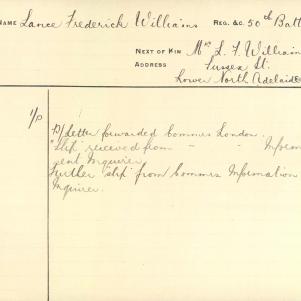 NAME Lance Frederick Williams REG. &C. 50th Batt
NEXT OF KIN Mrs L. F. William
ADDRESS Sussex St.
Lower North Adelaide
D/Letter forwarded Commrs London.
"Slip" received from " " Inform
sent Inquirer.
Further "slip" from Commrs Information
Inquirer.